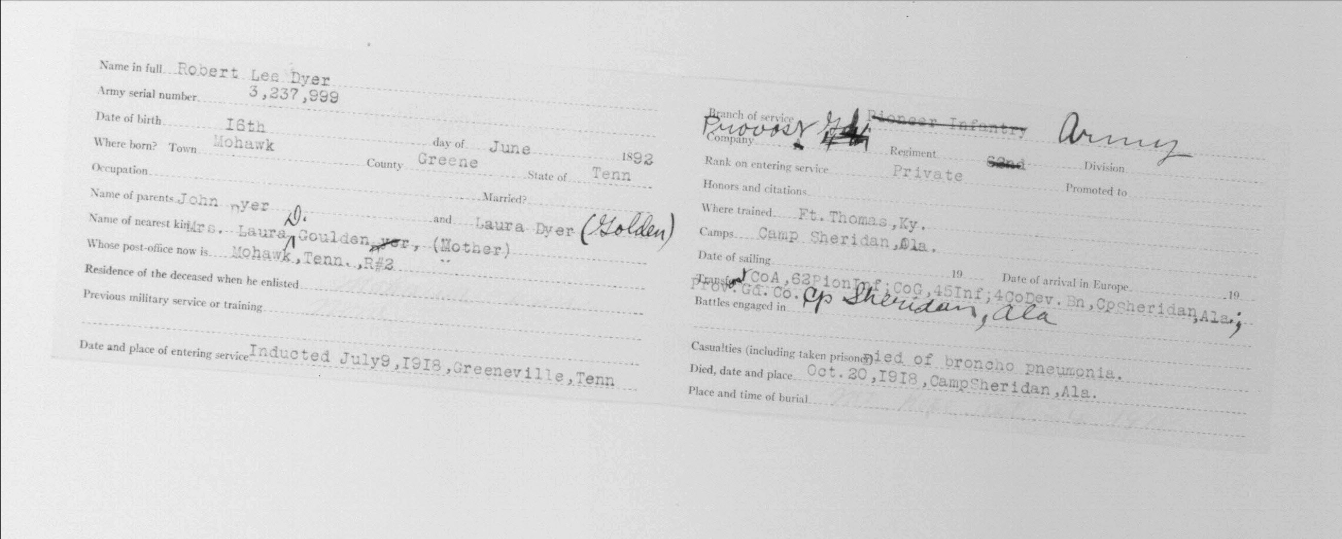 Name in full Robert Lee Dyer
Army serial number 3,237,999
Date of birth I6th day of June 1892
Where born? Town Mohawk County Greene State of Tenn
Occupation Married?
Name of parents John Dyer and Laura Dyer (Golden)
Name of nearest kin Mrs. Laura D. Goulden yer, (Mother)
Whose post-office now is Mohawk, Tenn., R#2
Residence of the deceased when he enlisted
Previous military service or training
Date and place of entering service Inducted July9,I9I8,Greeneville,Tenn
Branch of service Pioneer Infantry Army
Provost
Company Regiment 62nd Division
Rank on entering service Private Promoted to
Honors and citations
Where trained Ft. Thomas,Ky.
Camps Camp Sheridan,Ala.
Date of sailing 19 Date of arrival in Europe 19
Transfer CoA,62PionInf;CoG,45Inf;4CoDev.Bn,Cpsheridan,Ala;
Prov.Gd.Co. Cp Sheridan, Ala
Battles engaged in
Casualties (including taken prisoner) Died of broncho pneumonia.
Died, date and place Oct.20,I9I8,CampSheridan,Ala.
Place and time of burial